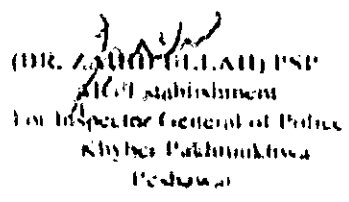 (DR. ZAHID ULLAH) PSP
AIG/Establishment
For Inspector General of Police
Khyber Pakhtunkhwa
Peshawar